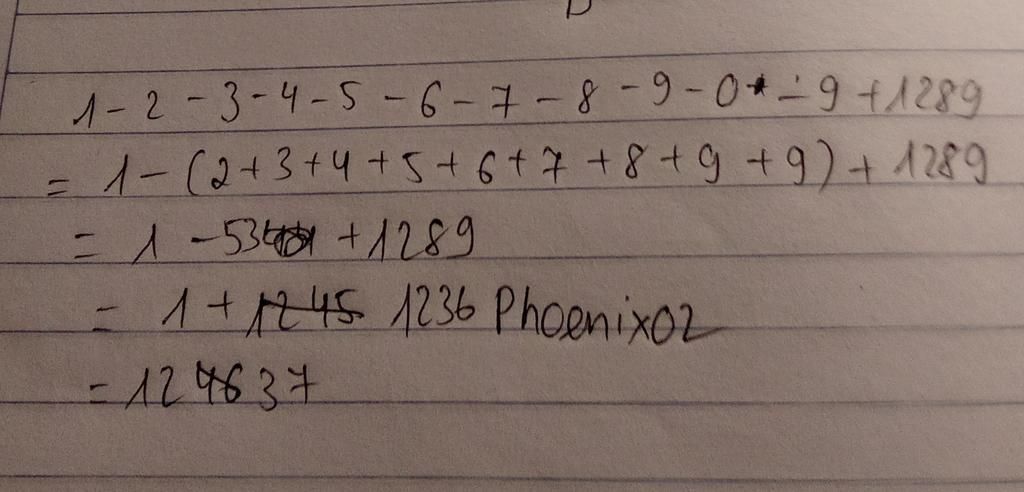 1-2-3-4-5-6-7-8-9-0-9+1289
= 1-(2+3+4+5+6+7+8+9+9)+1289
= 1-53+1289
= 1+1245 1236 Phoenix02
= 124637